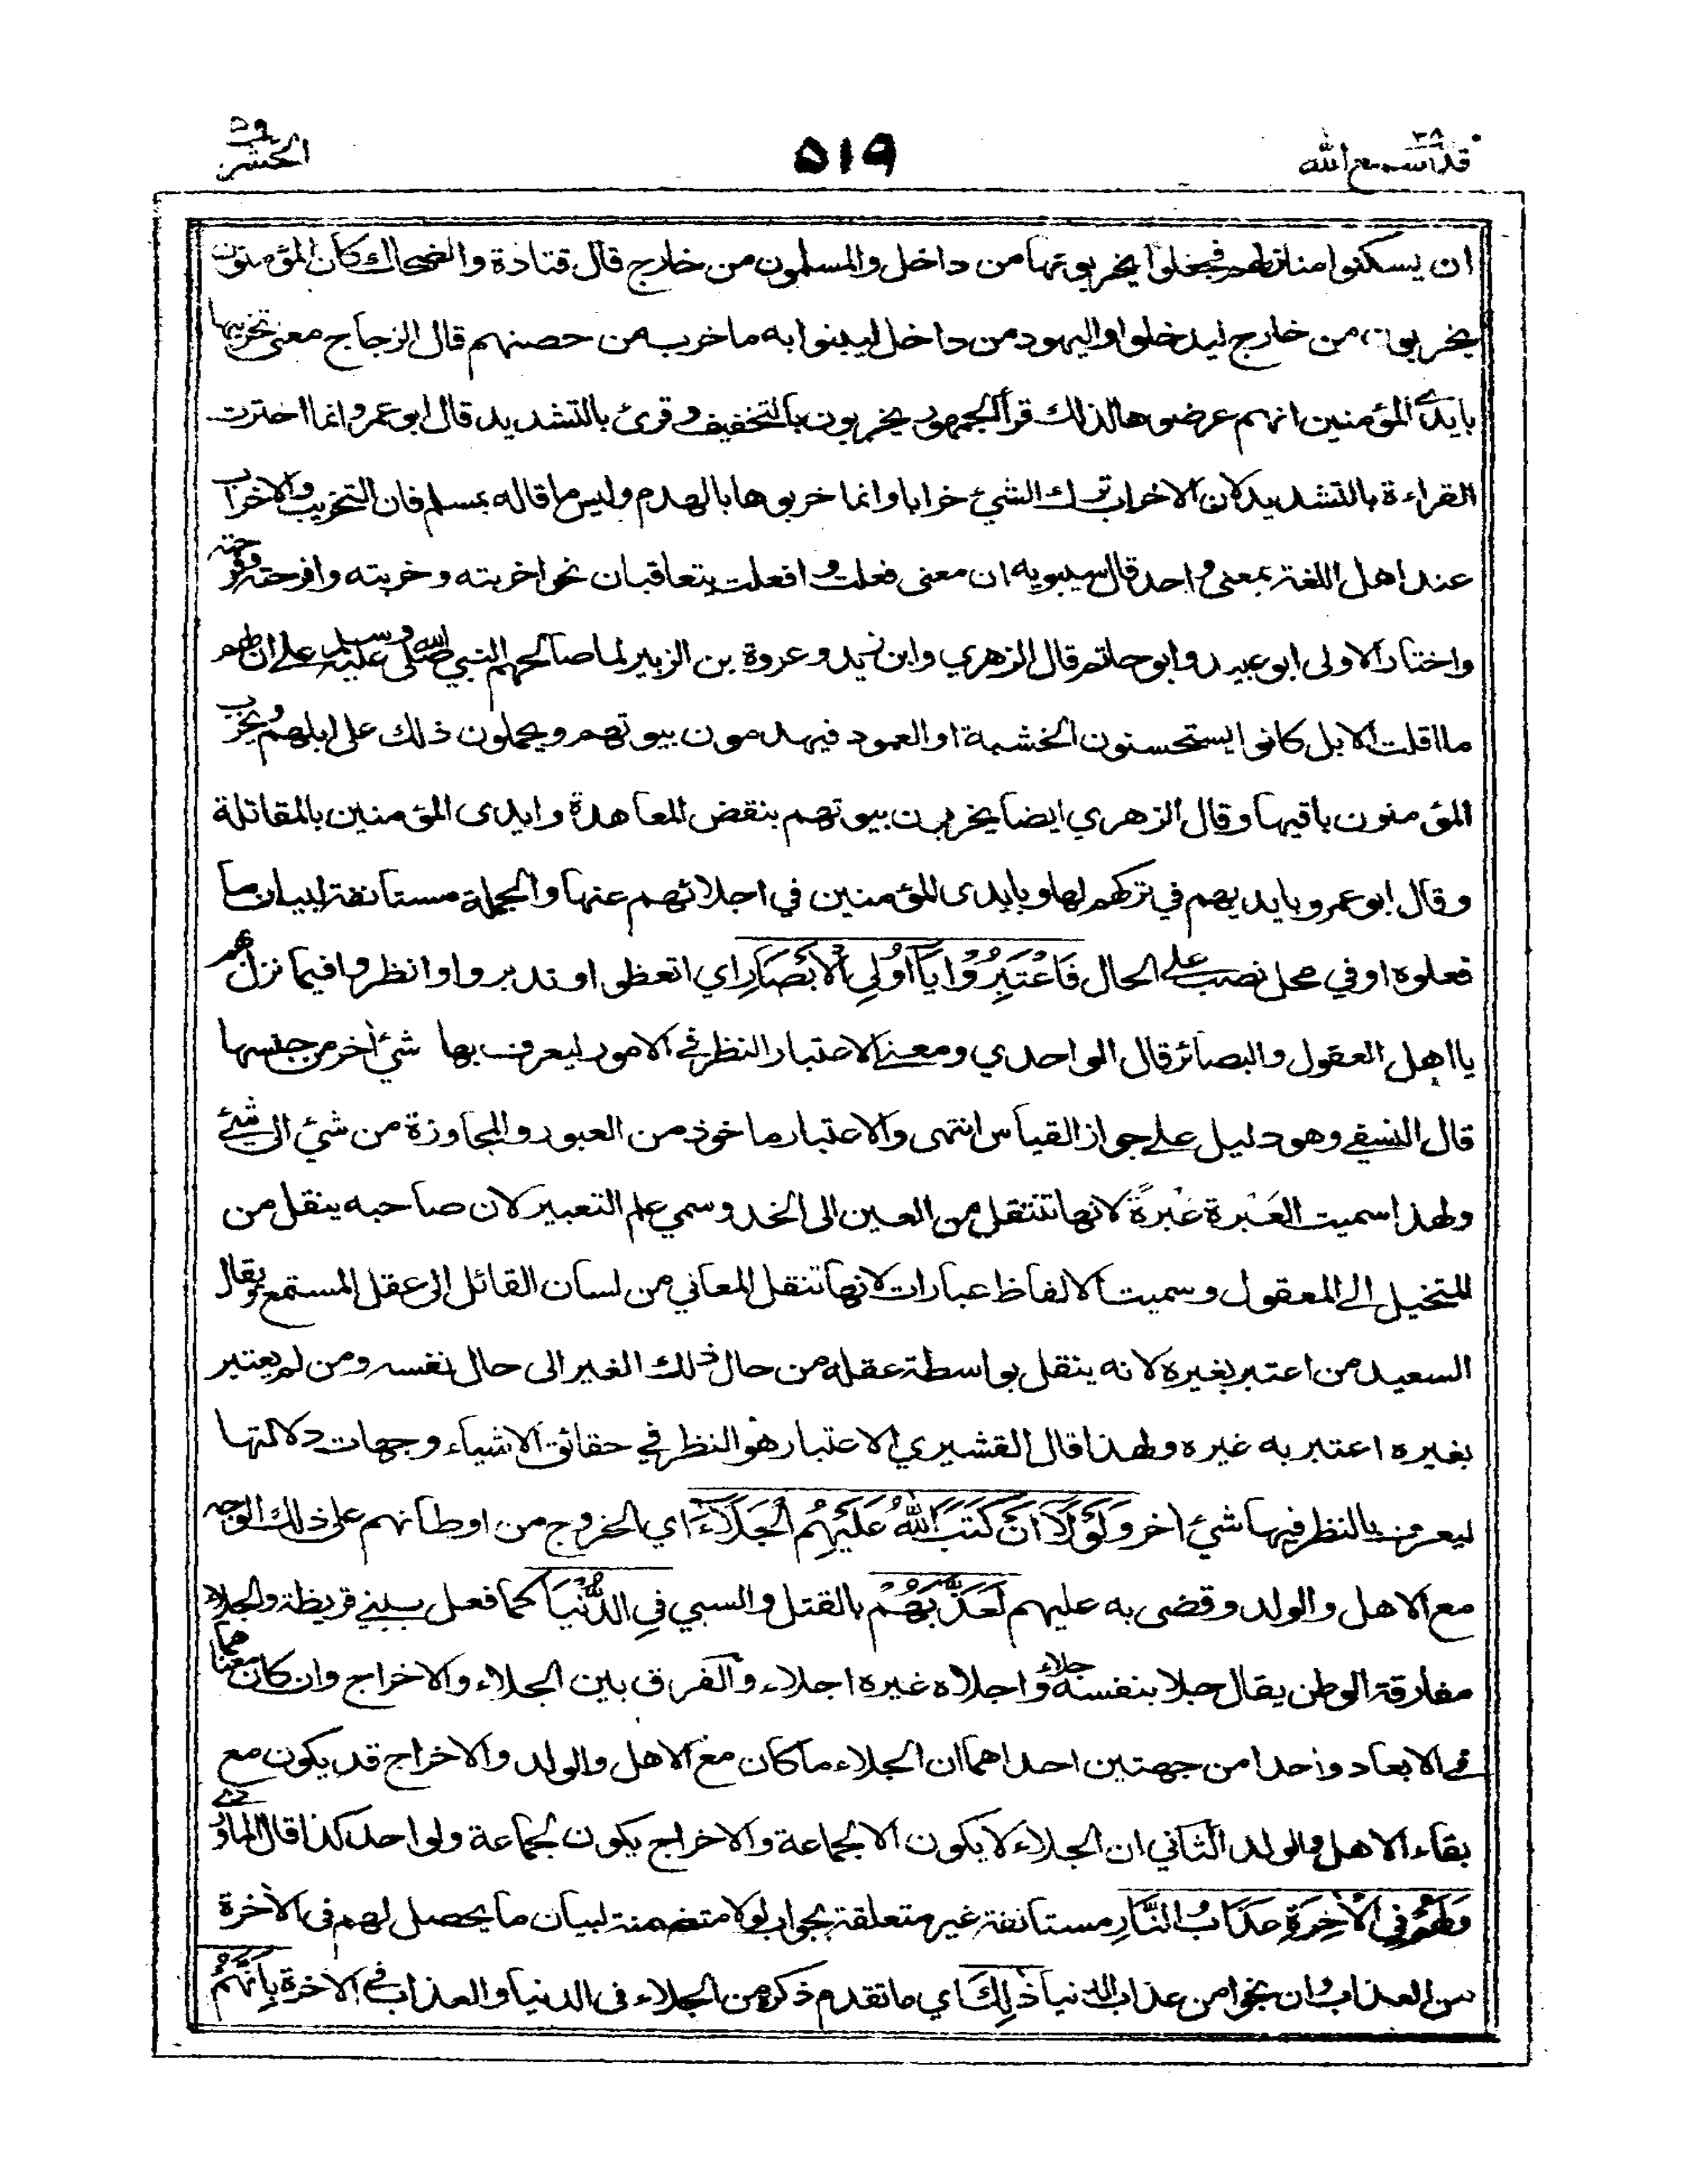 قد سمع الله ٢٨
٥١٩
الحشر ٥٩
ان يسكنوا منازلهم فجعلوا يخربونها من داخل والمسلمون من خارج قال قتادة والضحاك كان المؤمنون
يخربون من خارج ليدخلوا واليهود من داخل ليبنوا به ما خرب من حصنهم قال الزجاج معنى تخريبها
بايدى المؤمنين انهم عرضوها لذلك قرأ الجمهور يخربون بالتخفيف وقرئ بالتشديد قال ابو عمرو انما اخترت
القراءة بالتشديد لان الاخراب ترك الشيئ خرابا وانما خربوها بالهدم وليس ما قاله بمسلم فان التخريب والاخراب
عند اهل اللغة بمعنى واحد قال سيبويه ان معنى فعلت وافعلت يتعاقبان نحو اخربته وخربته وافرحته وفرحته
واختار الاولى ابو عبيد وابو حاتم قال الزهري وابن زيد وعروة بن الزبير لما صالحهم النبي صلى الله عليه وسلم على ان لهم
ما اقلت الابل كانوا يستحسنون الخشبة او العمود فيهدمون بيوتهم ويحملون ذلك على ابلهم ويخرب
المؤمنون باقيها وقال الزهري ايضا يخربون بيوتهم بنقض المعاهدة وايدى المؤمنين بالمقاتلة
وقال ابو عمرو بايديهم في تركهم لها وبايدى المؤمنين في اجلائهم عنها والجملة مستأنفة لبيان ما
فعلوه او في محل نصب على الحال فَاعْتَبِرُوْا يَآ اُولِي الْاَبْصَارِ اي اتعظوا وتدبروا وانظروا فيما نزل بهم
يا اهل العقول والبصائر قال الواحدي ومعنى الاعتبار النظر في الامور ليعرف بها شيئ اخر من جنسها
قال النسفي وهو دليل على جواز القياس انتهى والاعتبار ماخوذ من العبور والمجاوزة من شيئ الى شيئ
ولهذا سميت العَبْرة عَبْرَةً لانها تنتقل من العين الى الخد وسمي علم التعبير لان صاحبه ينقل من
المتخيل الى المعقول وسميت الالفاظ عبارات لانها تنقل المعاني من لسان القائل الى عقل المستمع ويقال
السعيد من اعتبر بغيره لانه ينقل بواسطة عقله من حال ذلك الغير الى حال نفسه ومن لم يعتبر
بغيره اعتبر به غيره ولهذا قال القشيري الاعتبار هو النظر في حقائق الاشياء وجهات دلالتها
ليعرف بالنظر فيها شيئ اخر وَلَوْلَا اَنْ كَتَبَ اللّٰهُ عَلَيْهِمُ الْجَلَاءَ اي الخروج من اوطانهم على ذلك الوجه
مع الاهل والولد وقضى به عليهم لَعَذَّبَهُمْ بالقتل والسبي فِي الدُّنْيَا كما فعل ببني قريظة والجلاء
مفارقة الوطن يقال جلا بنفسه جلاء واجلاه غيره اجلاء والفرق بين الجلاء والاخراج وان كان معناهما
في الابعاد واحدا من جهتين احداهما ان الجلاء ما كان مع الاهل والولد والاخراج قد يكون مع
بقاء الاهل والولد الثاني ان الجلاء لا يكون الا لجماعة والاخراج يكون لجماعة ولواحد كذا قال الماوردي
وَلَهُمْ فِي الْاٰخِرَةِ عَذَابُ النَّارِ مستانفة غير متعلقة بجواب لولا متضمنة لبيان ما يحصل لهم فى الاٰخرة
من العذاب وان نجوا من عذاب الدنيا ذٰلِكَ اي ما تقدم ذكره من الجلاء فى الدنيا والعذاب في الاخرة بِاَنَّهُمْ